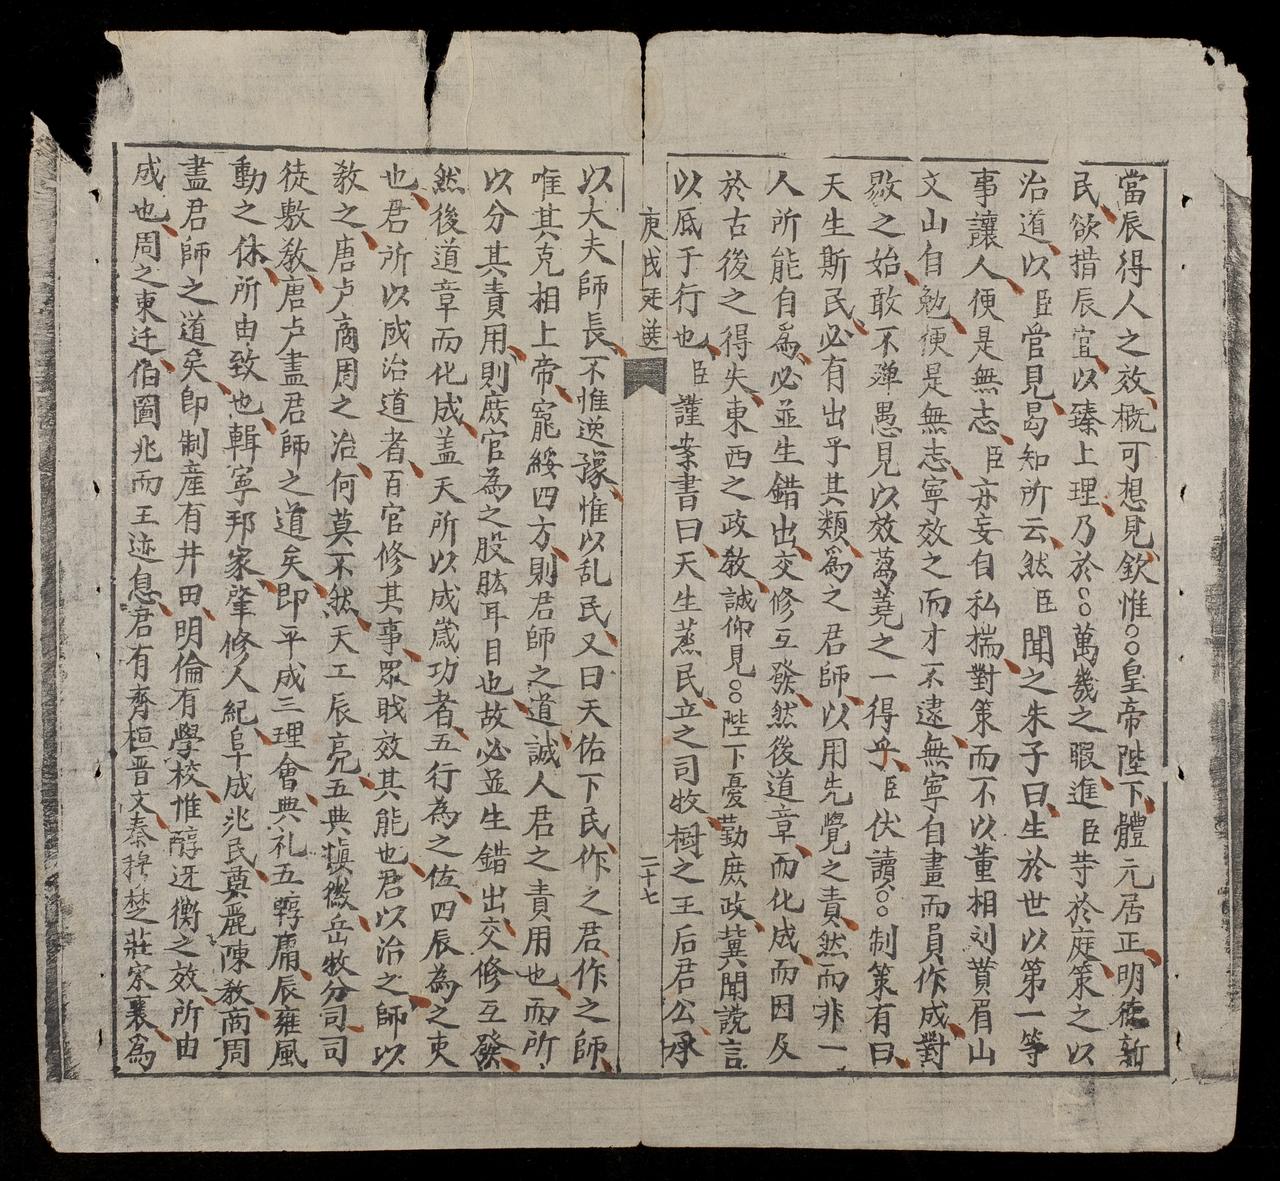 當辰得人之效概可想見欽惟○○皇帝陛下體元居正明德新
民欲措辰宜以臻上理乃於○○萬幾之暇進臣䓁於庭策之以
治道以臣管見曷知所云然臣聞之朱子曰生於世以第一等
事讓人便是無志臣亦妄自私揣對策而不以董相刘蕡眉山
文山自勉便是無志寧效之而才不逮無寧自畫而員作成對
敭之始敢不殫愚見以效蒭蕘之一得乎臣伏讀○○制策有曰
天生斯民必有出乎其類爲之君師以用先覺之責然而非一
人所能自爲必並生錯出交修互發然後道章而化成而因及
於古後之得失東西之政教誠仰見○○陛下憂勤庶政冀聞讜言
以底于行也臣謹案書曰天生蒸民立之司牧樹之王后君公承
庚戌廷選
二十七
以大夫師長不惟逸豫惟以乱民又曰天佑下民作之君作之師
唯其克相上帝寵綏四方則君師之道誠人君之責用也而所
以分其責用則庶官為之股肱耳目也故必並生錯出交修互發
然後道章而化成盖天所以成歲功者五行為之佐四辰為之吏
也君所以成治道者百官修其事眾戝效其能也君以治之師以
敎之唐卢商周之治何莫不然天工辰亮五典愼徽岳牧分司司
徒敷敎唐卢盡君師之道矣即平成三理會典礼五惇庸辰雍風
動之休所由致也輯寧邦家肇修人紀阜成兆民奠麗陳敎商周
盡君師之道矣卽制產有井田明倫有學校惟醇迓衡之效所由
成也周之東迁伯圖兆而王迹息君有齊桓晋文秦穆楚莊宋襄爲